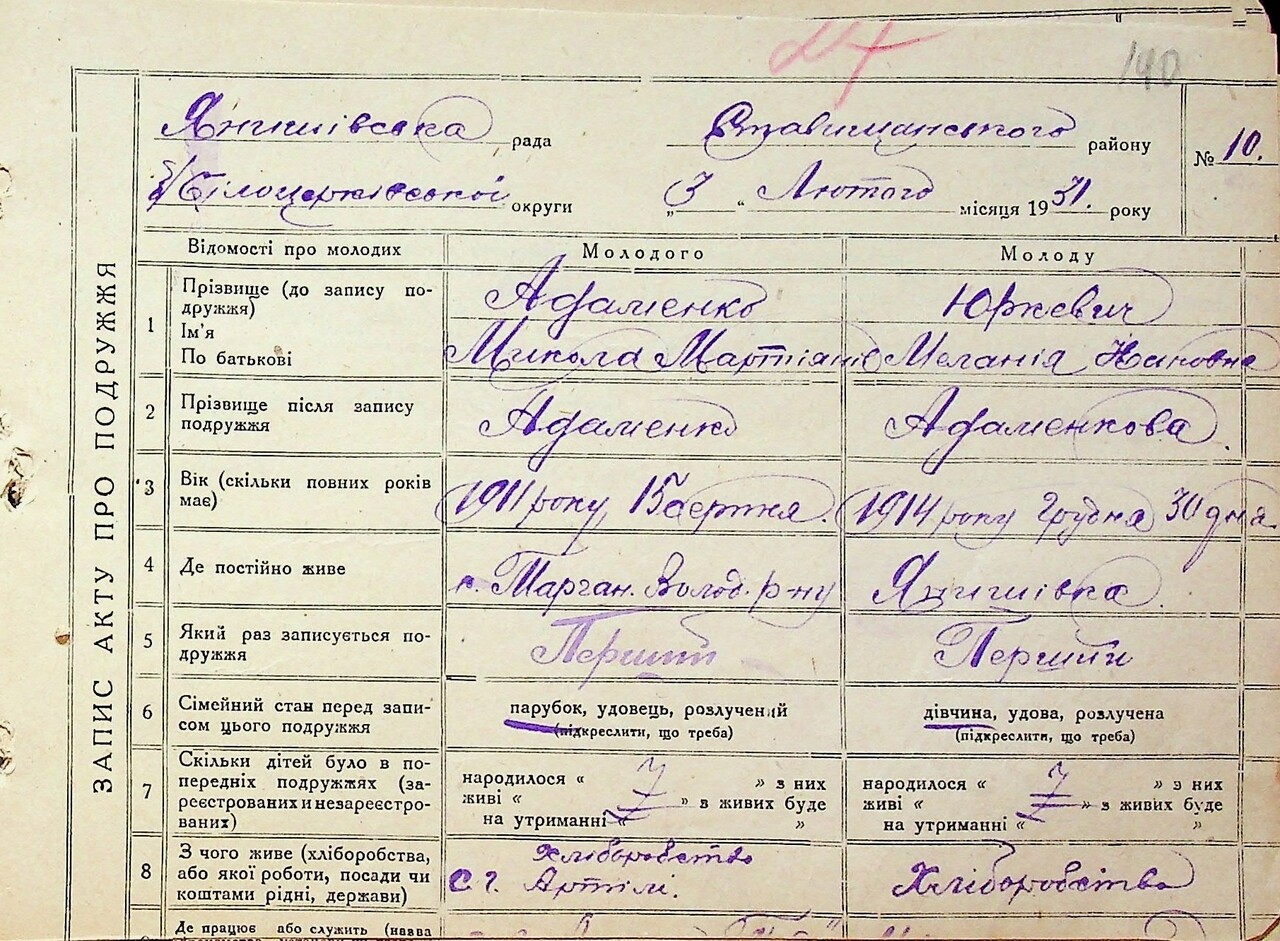 140
Янишівська рада Ставищанського району № 10.
Білоцерківської округи „3" Лютого місяця 1931. року
ЗАПИС АКТУ ПРО ПОДРУЖЖЯ
Відомості про молодих Молодого Молоду
1 Прізвище (до запису по- Адаменко Юркевич
дружжя)
Ім'я
По батькові Микола Мартіянів Меланія
2 Прізвище після запису Адаменко Адаменкова.
подружжя
3 Вік (скільки повних років 1911 року 15 серпня. 1914 року Грудня 30 дня.
має)
4 Де постійно живе с. Марган. Волод. р-ну Янишівка.
5 Який раз записується по- Перший Перший
дружжя
6 Сімейний стан перед запи- парубок, удовець, розлучений дівчина, удова, розлучена
сом цього подружжя (підкреслити, що треба) (підкреслити, що треба)
7 Скільки дітей було в по- народилося « » з них народилося « » з них
передніх подружжях (за- живі « » з живих буде живі « » з живих буде
реєстрованих и незареєстро- на утриманні « » на утриманні « »
ваних)
8 З чого живе (хліборобства, Хліборобство Хліборобства
або якої роботи, посади чи С. г. Артілі.
коштами рідні, держави)
Де працює або служить (назва